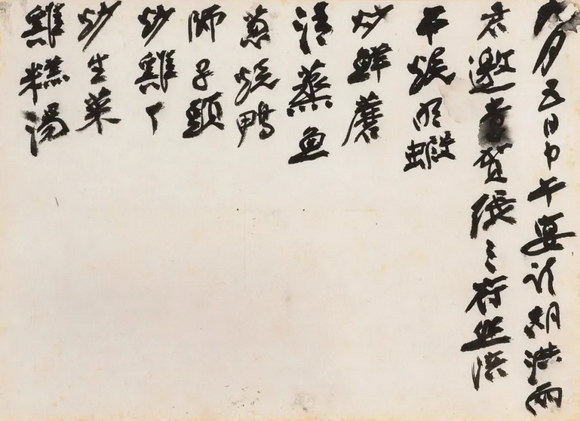 月五日中午宴胡洪兩
君邀張
干燒明蝦
炒鮮蘑
清蒸魚
葱燒鴨
師子頭
炒雞丁
炒生菜
雞糕湯